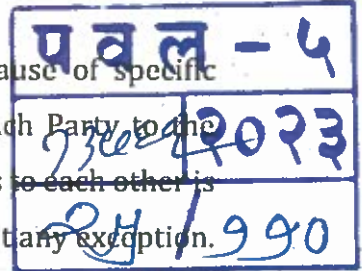 पवल - ५
ause of specific
ch Party to the
२०२३
s to each other is
t any exception.
/ ११०